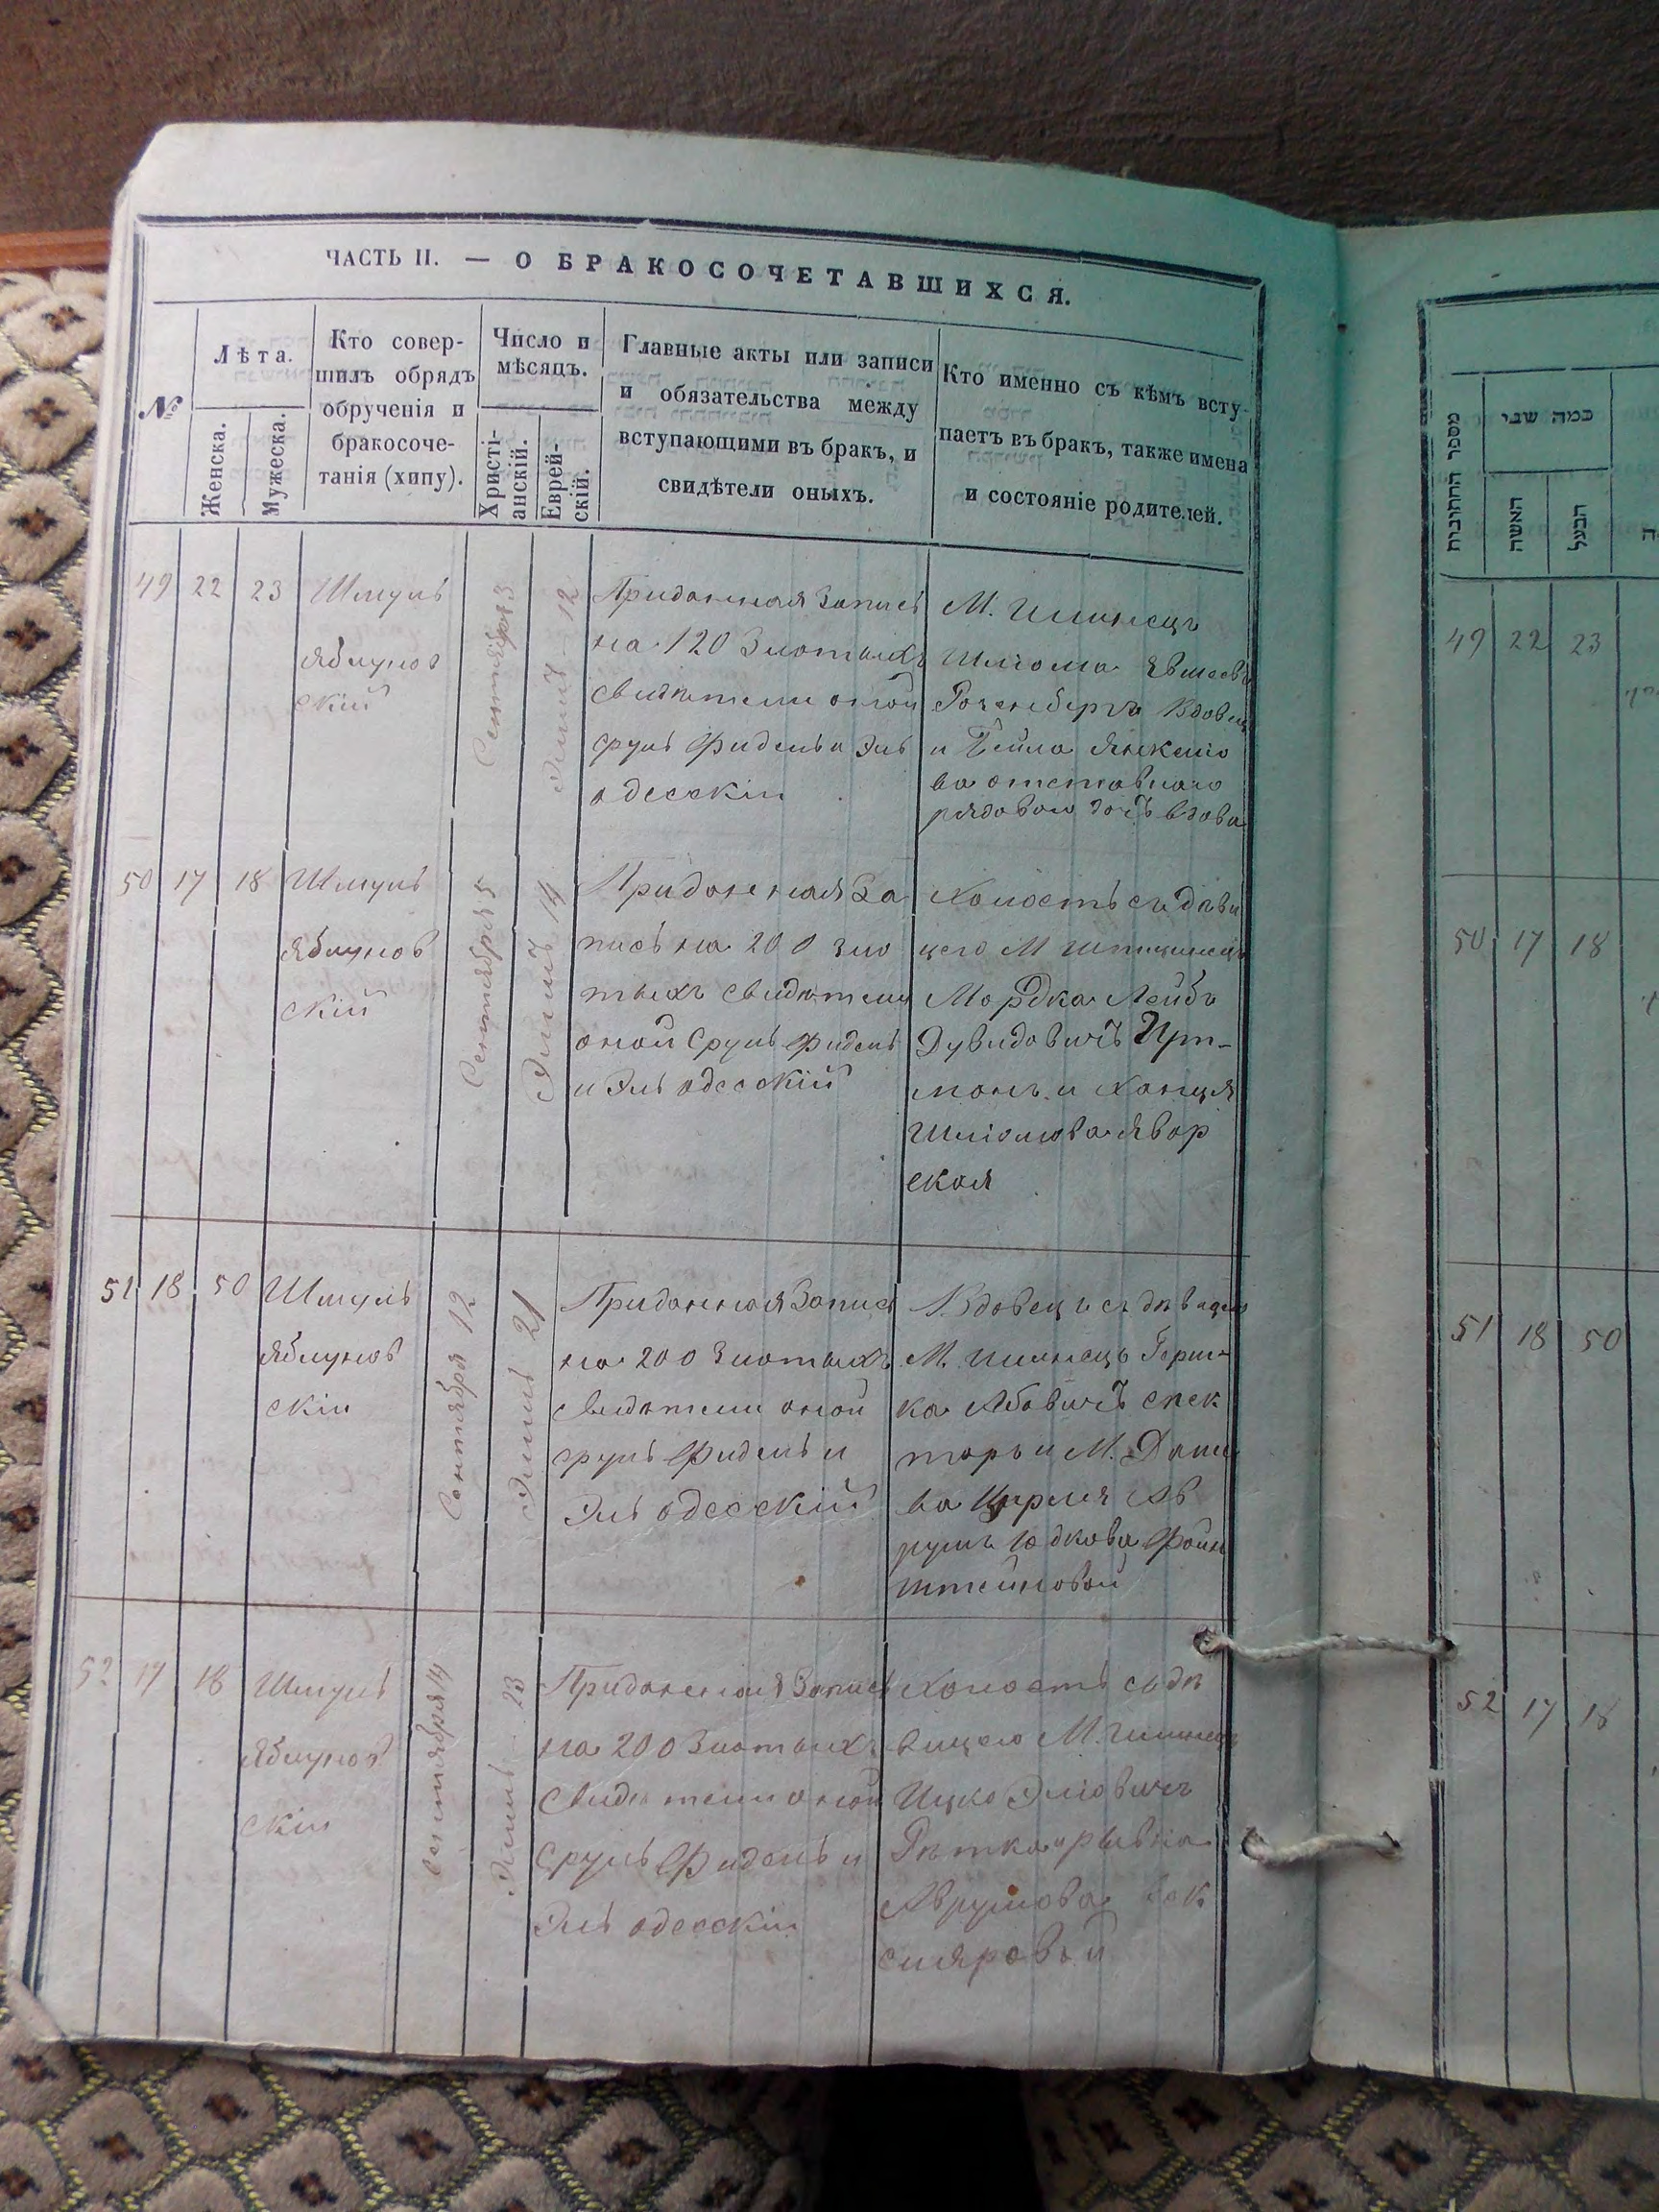 ЧАСТЬ II. — О БРАКОСОЧЕТАВШИХСЯ.
№
Лѣта.
Женска.
Мужеска.
Кто совер-
шилъ обрядъ
обрученія и
бракосоче-
танія (хипу).
Число и
мѣсяцъ.
Христі-
анскій.
Еврей-
скій.
Главные акты или записи
и обязательства между
вступающими въ бракъ, и
свидѣтели оныхъ.
Кто именно съ кѣмъ всту-
паетъ въ бракъ, также имена
и состояніе родителей.
49 22 23
Шмуль
яблунов
скій
Сентября 3
Элиль 12
Приданная Запись
на 120 Злотыхъ
свидѣтели оной
сруль Фидель и Эль
одесскій
М.
Шліома Евшеевъ
Розенбергъ Вдовец
и Бейла Янкеліо
ва отставного
рядового дочь вдова
50 17 18
Шмуль
яблунов
скій
Сентября 5
Элиль 14
Приданная За
пись на 200 зло
тыхъ свидѣтели
оной Сруль Фидель
и Эль одесскій
Холостъ съ дѣви
цею М
Мордка Лейбъ
Дувидовичъ
и Ханця
Шліомова Явор
ская
51 18 50
Шмуль
яблунов
скій
Сентября 12
Элиль 21
Приданная Запись
на 200 Злотыхъ
свидѣтели оной
сруль Фидель и
Эль одесскій
Вдовецъ съ дѣвицею
М. Герш-
ка Абовичъ спек
торъ и М. Даше
ва Цирля Ав
румъ Юдкова Фаин
штейновой
52 17 18
Шмуль
яблунов
скій
Сентября 14
Элиль 23
Приданная Запись
на 200 Злотыхъ
свидѣтели оной
Сруль Фидель и
Эль одесскій
Холостъ съ дѣ
вицею М.
Ицко Эліовичъ
Аврумова
מספר החתונות
כמה שני
האשה
הבעל
49 22 23
50 17 18
51 18 50
52 17 18